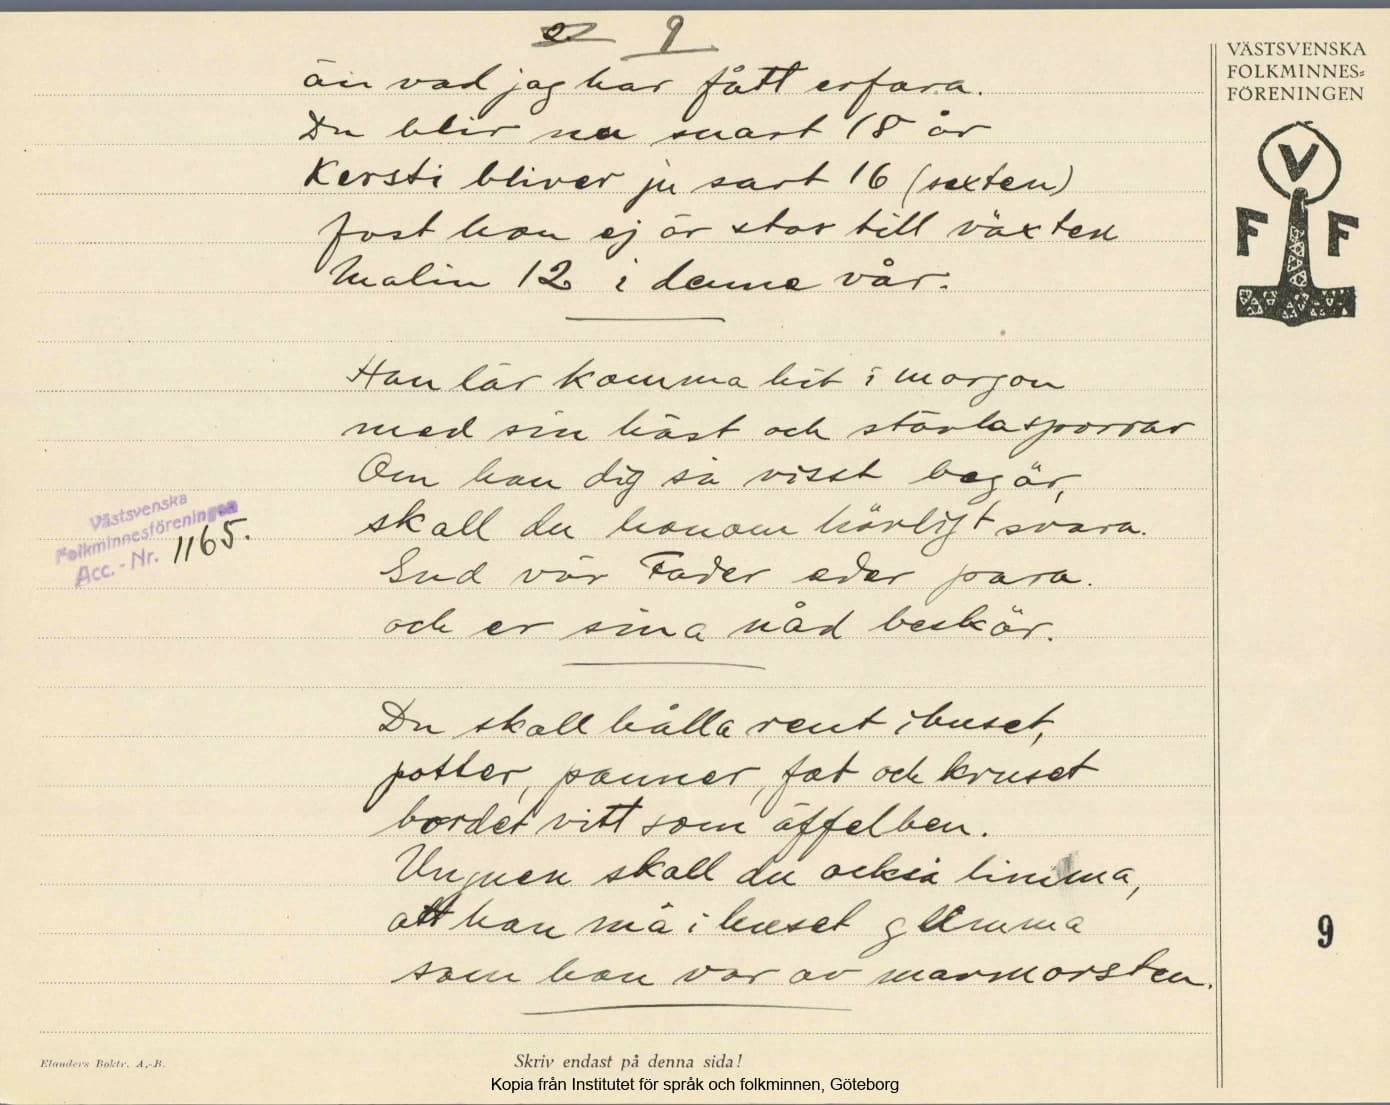 9
VÄSTSVENSKA
FOLKMINNES-
FÖRENINGEN
V
F F
än vad jag har fått erfara.
Du blir nu snart 18 år
Kersti bliver ju sart 16 (sexten)
fast hon ej är stor till växten
Malin 12 i denna vår.
Han lär komma hit i morgon
med sin häst och stövlasporrar
Om han dig så visst begär,
skall du honom hövligt svara.
Gud vår Fader eder para.
och er sina nåd beskär.
Västsvenska
Folkminnesföreningen
Acc. - Nr. 1165.
Du skall hålla rent i huset,
potter, panner, fat och kruset
bordet vitt som äffelben.
Ungnen skall du också limma,
att han må i huset glimma
som han var av marmorsten.
9
Elanders Boktr. A.-B.
Skriv endast på denna sida!
Kopia från Institutet för språk och folkminnen, Göteborg